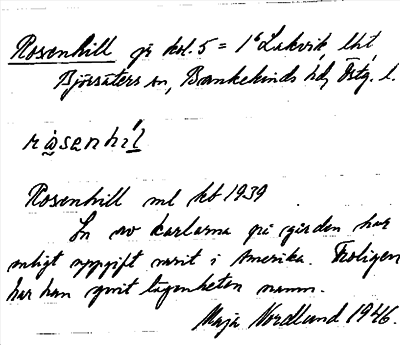 Rosenhill på kol. 5 = 1e Lakvik, lht
Björsäters sn, Bankekinds hd, Östg. l.
råsenhil
Rosenhill ml kb 1939
En av karlarna på gården har
enligt uppgift varit i Amerika. Troligen
har han givit lägenheten namn.
Maja Nordlund 1946.